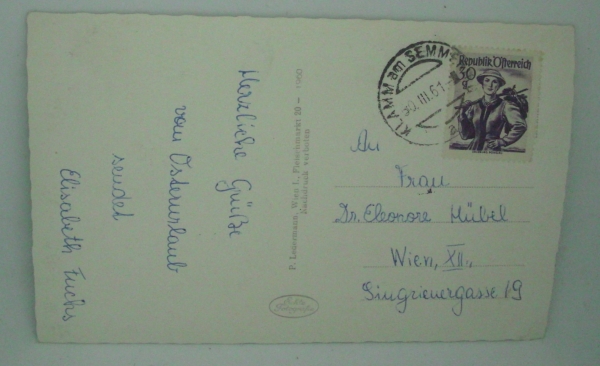 Herzliche Grüße
vom Osterurlaub
sendet
Elisabeth Fuchs
P. Ledermann, Wien I., Fleischmarkt 20 -
Nachdruck verboten
KLAMM am SEMME
30. III. 61
Republik Österreich
An
Frau
Dr. Eleonore Hübel
Wien, XII.,
Singrienergasse 19